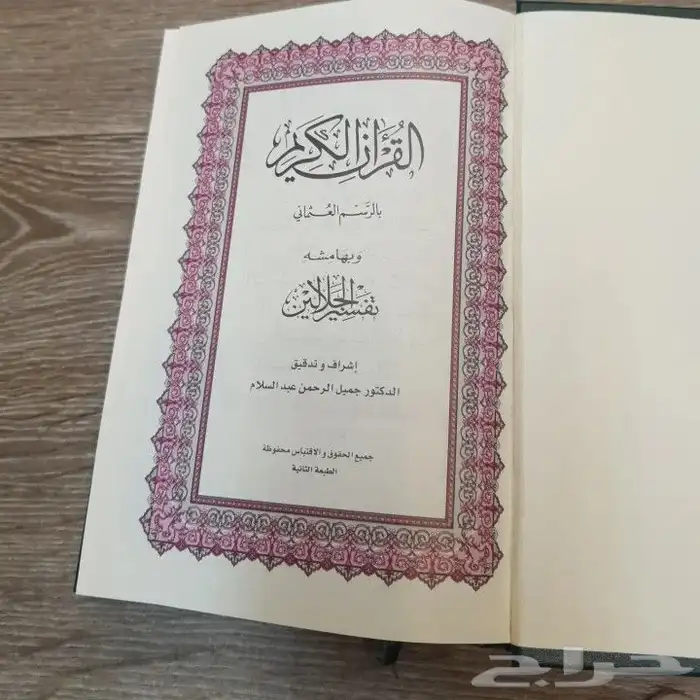 القُرْآنُ الكَرِيم
بالرَّسم العُثماني
وبهامشه
تفسير الجلالين
إشراف و تدقيق
الدكتور جميل الرحمن عبد السلام
جميع الحقوق و الاقتباس محفوظة
الطبعة الثانية
حراج